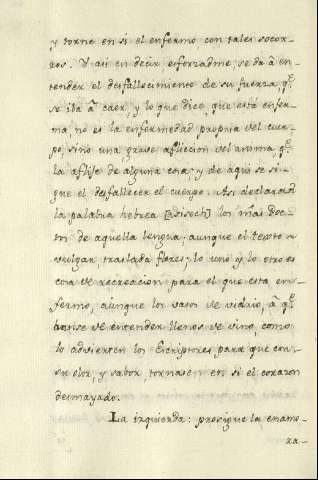 y torne en si el enfermo, con tales socor-
ros. Y asi en decir esforzadme, se dà à en-
tender el desfallecimiento de su fuerza, q̃.
se iba à caer, y lo que dice, que està enfer-
ma, no es la enfermedad propria del cuer-
po, sino una grave afliccion del anima, q̃.
la aflije de alguna cosa; y de aqui se si-
gue el desfallecer el cuerpo. Asi declarando
la palabra hebrea los mas Doc-
tos de aquella lengua; aunque el texto
vulgar traslada flores; lo uno y lo otro es
cosa de recreacion para el que està en-
fermo, aunque los vasos de vidrio, à q̃.
de entender llenos de vino, como
lo advierten los Escriptores, para que con
su olor, y sabor, tornase en si el corazon
desmayado.
La izquierda: prosigue la enamo-
ra-